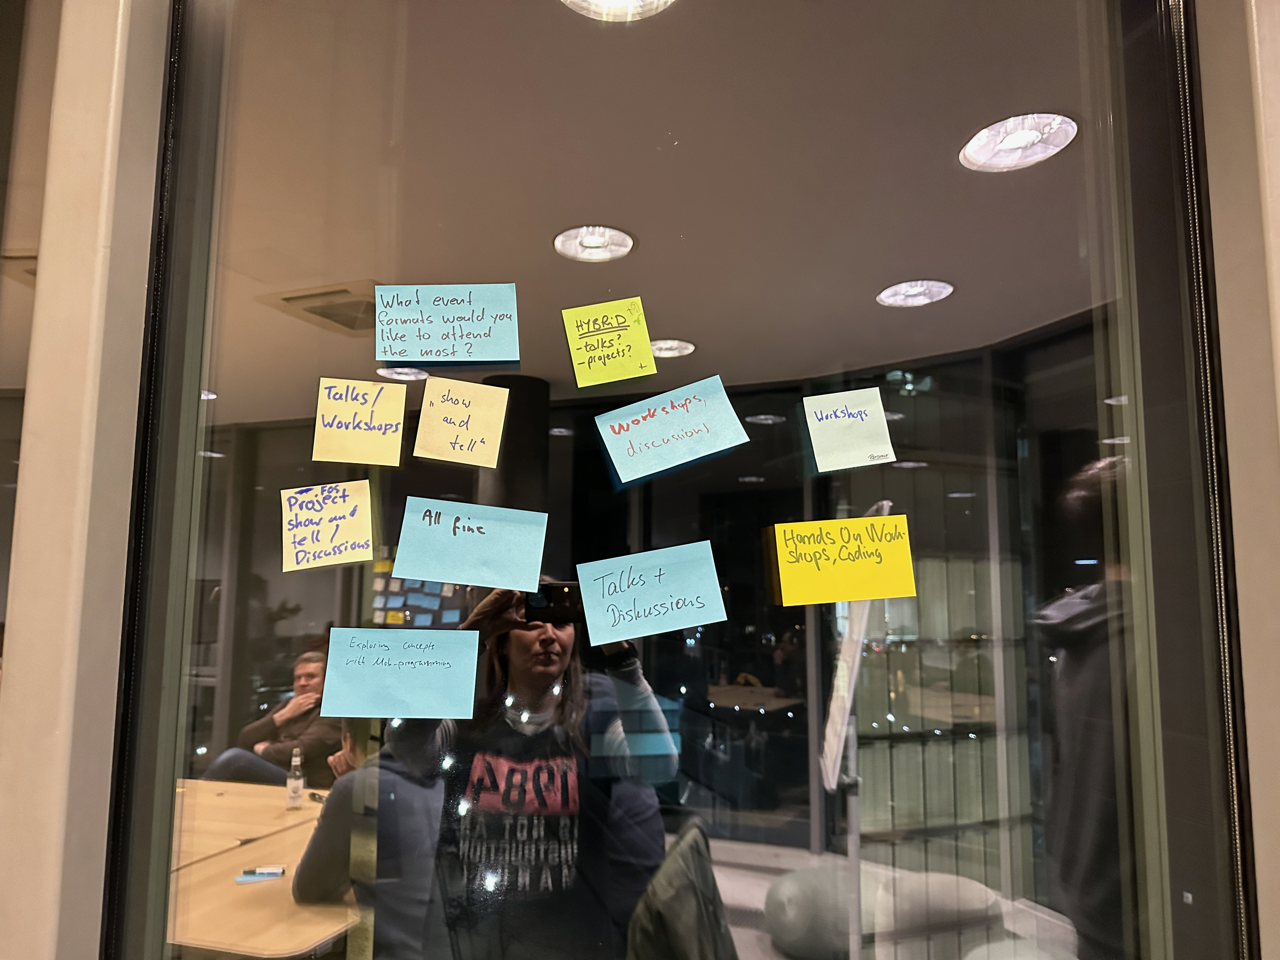 What event
formats would you
like to attend
the most?
HYBRiD
-talks?
-projects?
Talks/
Workshops
„show
and
tell“
Workshops,
discussions
Workshops
FOS
Project
show and
tell /
Discussions
All fine
Talks +
Diskussions
Hands On Work-
shops, Coding
Exploring concepts
with Mob-programming